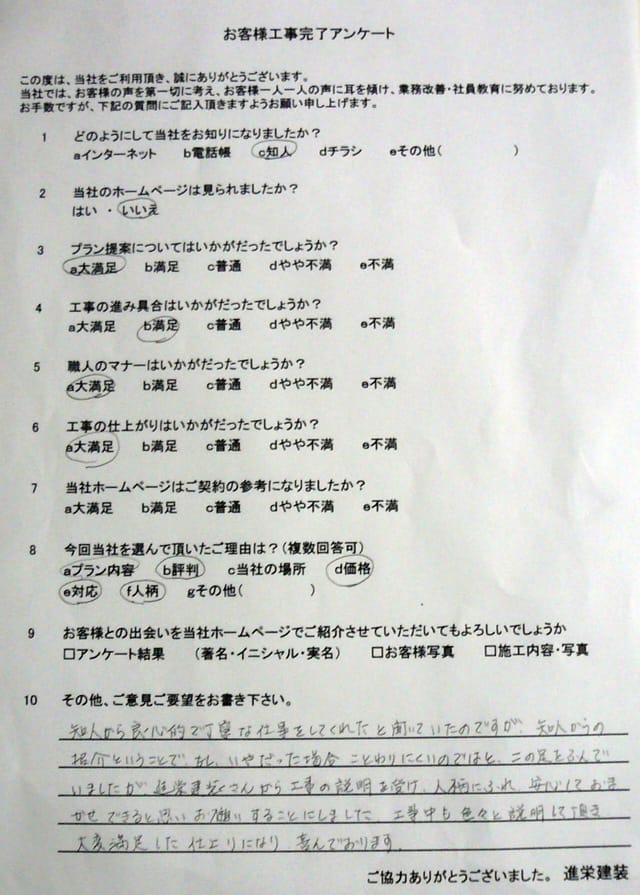 お客様工事完了アンケート
この度は、当社をご利用頂き、誠にありがとうございます。
当社では、お客様の声を第一切に考え、お客様一人一人の声に耳を傾け、業務改善・社員教育に努めております。
お手数ですが、下記の質問にご記入頂きますようお願い申し上げます。
1 どのようにして当社をお知りになりましたか？
aインターネット b電話帳 c知人 dチラシ eその他( )
2 当社のホームページは見られましたか？
はい ・ いいえ
3 プラン提案についてはいかがだったでしょうか？
a大満足 b満足 c普通 dやや不満 e不満
4 工事の進み具合はいかがだったでしょうか？
a大満足 b満足 c普通 dやや不満 e不満
5 職人のマナーはいかがだったでしょうか？
a大満足 b満足 c普通 dやや不満 e不満
6 工事の仕上がりはいかがだったでしょうか？
a大満足 b満足 c普通 dやや不満 e不満
7 当社ホームページはご契約の参考になりましたか？
a大満足 b満足 c普通 dやや不満 e不満
8 今回当社を選んで頂いたご理由は？(複数回答可)
aプラン内容 b評判 c当社の場所 d価格
e対応 f人柄 gその他( )
9 お客様との出会いを当社ホームページでご紹介させていただいてもよろしいでしょうか
□アンケート結果 (著名・イニシャル・実名) □お客様写真 □施工内容・写真
10 その他、ご意見ご要望をお書き下さい。
知人から良心的で丁寧な仕事をしてくれたと聞いていたのですが、知人からの
紹介ということで、もし、いやだった場合ことわりにくいのではと、二の足をふんで
いましたが進栄建装さんから工事の説明を受け、人柄にふれ、安心しておま
かせできると思いお願いすることにしました。工事中も色々と説明して頂き
大変満足した仕上りになり喜んでおります。
ご協力ありがとうございました。 進栄建装